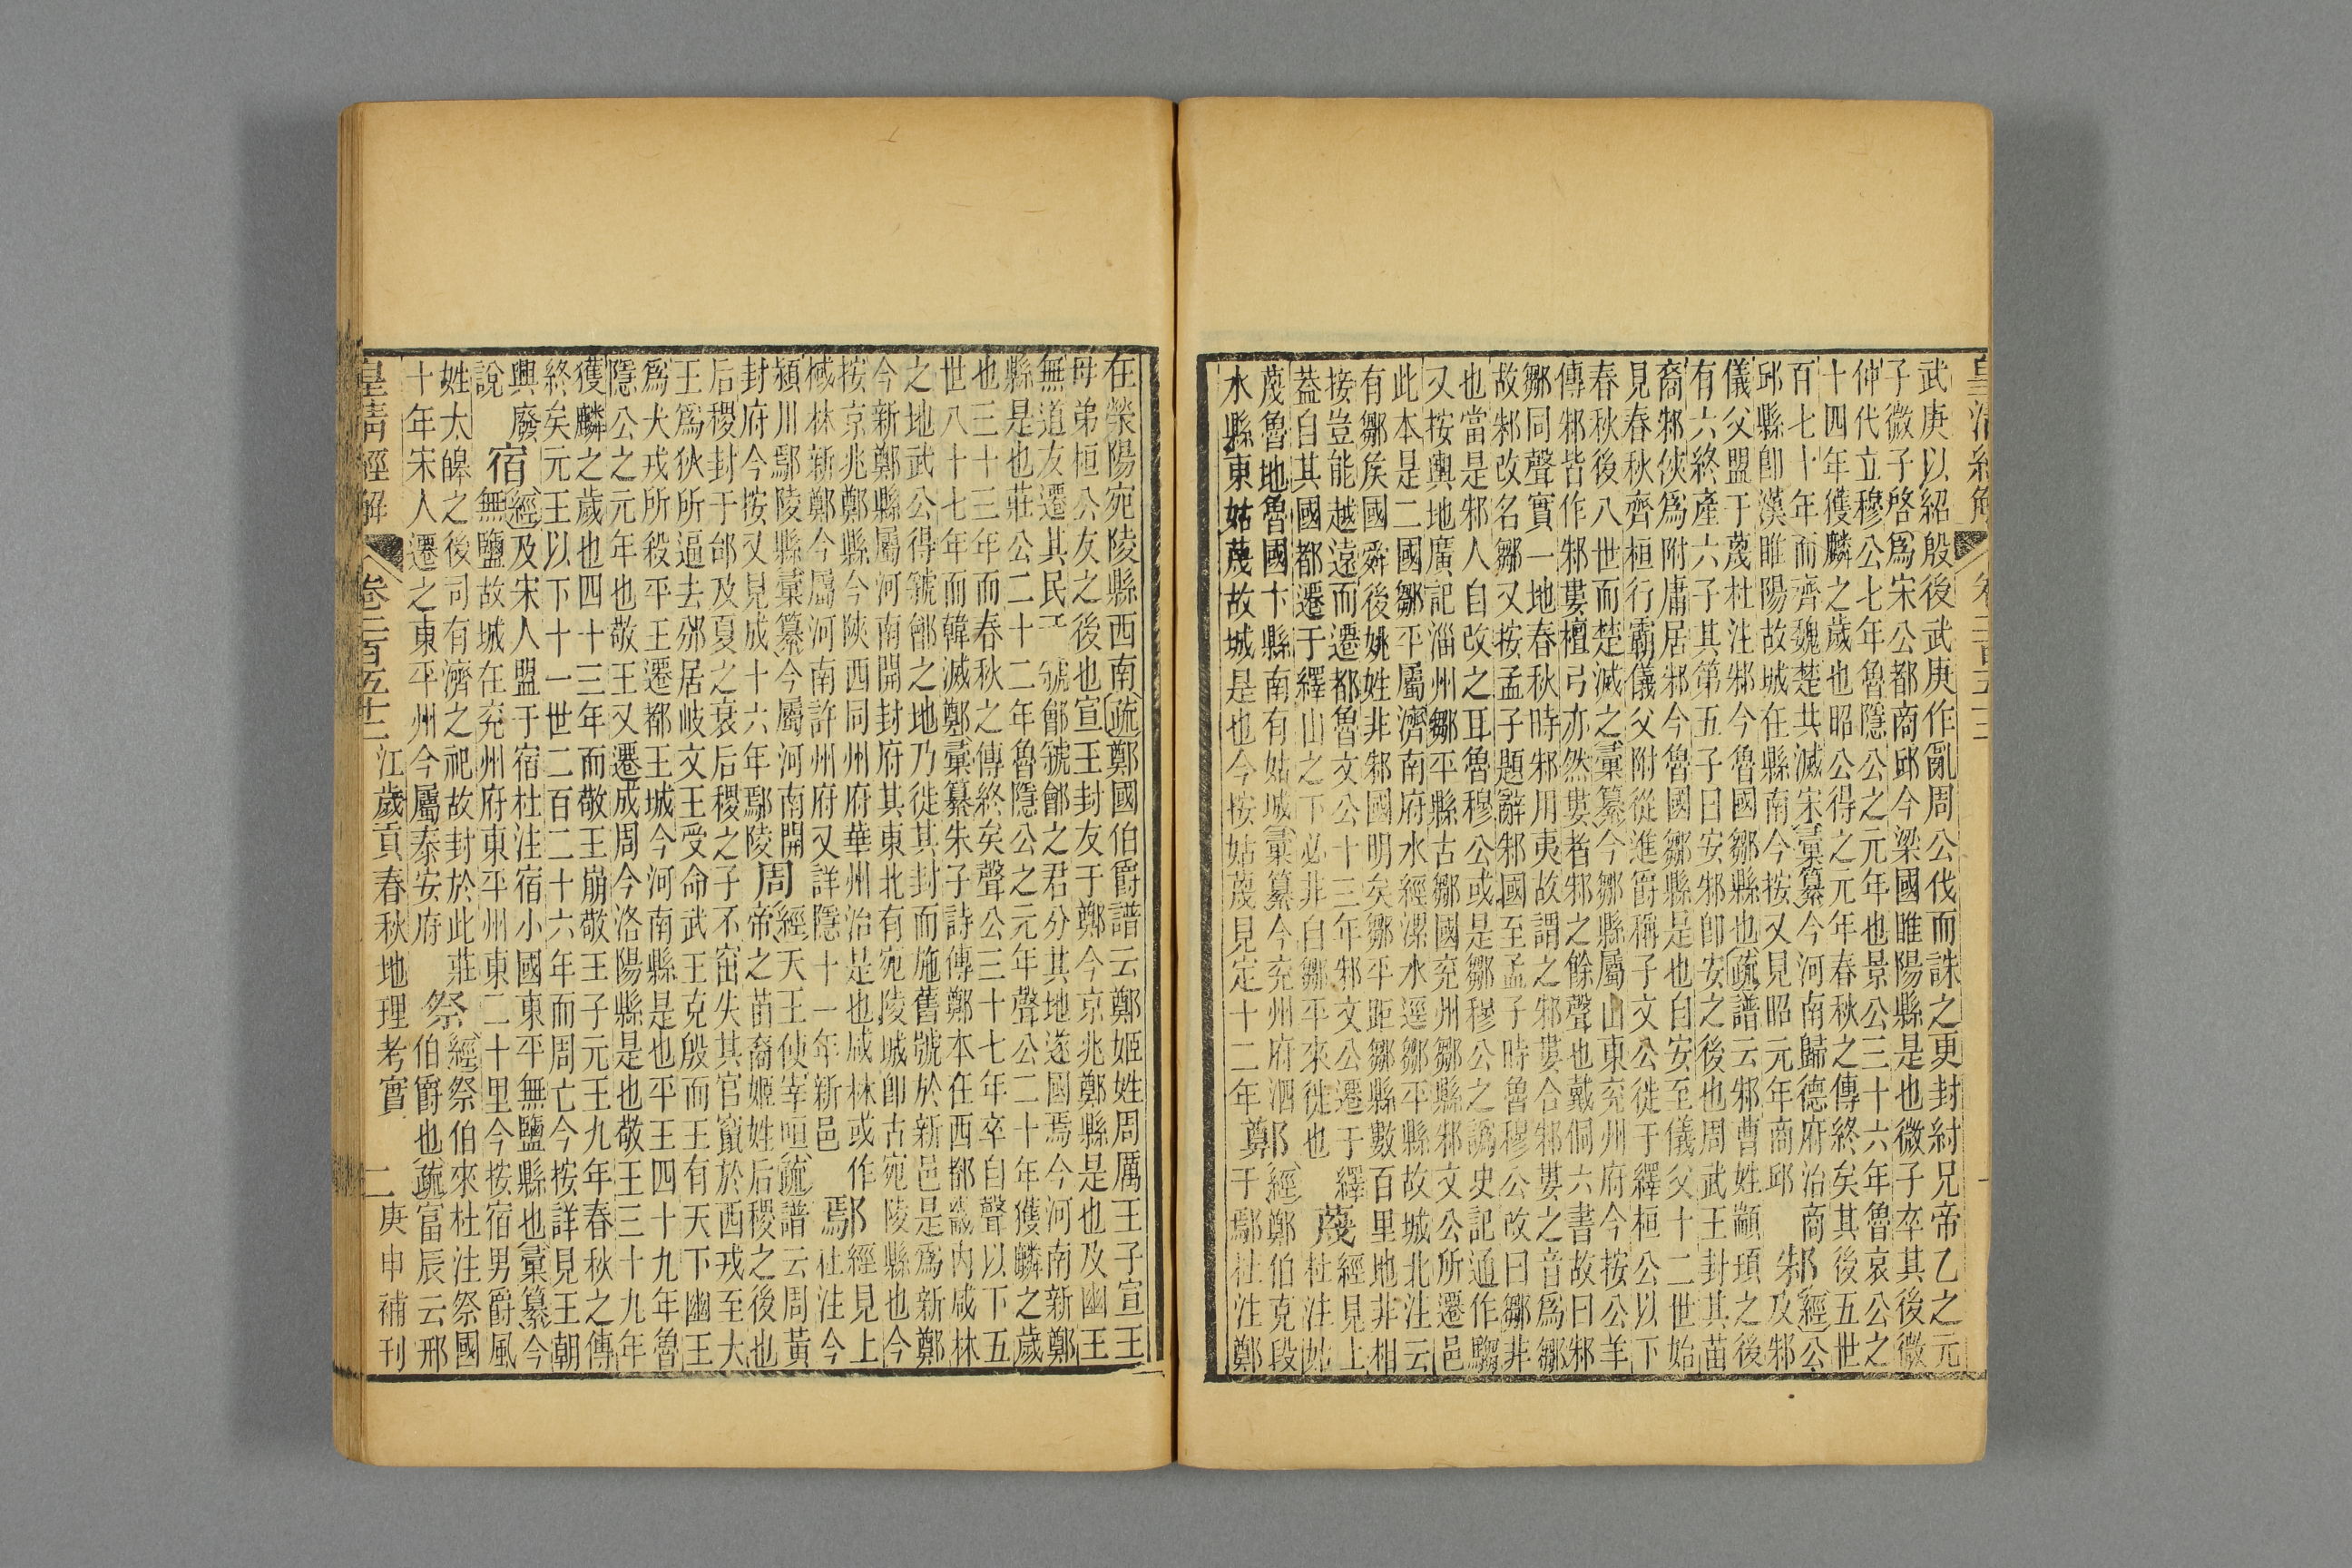 皇清經解 卷二百五十三 一
武庚以紹殷後武庚作亂周公伐而誅之更封紂兄帝乙之元
子微子啓爲宋公都商邱今梁國睢陽縣是也微子卒其後微
仲代立穆公七年魯隱公之元年也景公三十六年魯哀公之
十四年獲麟之歲也昭公得之元年春秋之傳終矣其後五世
百七十年而齊魏楚共滅宋彚纂今河南歸德府治商
邱縣卽漢睢陽故城在縣南今按又見昭元年商邱
邾
經公
及邾
儀父盟于蔑杜注邾今魯國鄒縣也疏譜云邾曹姓顓頊之後
有六終產六子其第五子曰安邾卽安之後也周武王封其苗
裔邾俠爲附庸居邾今魯國鄒縣是也自安至儀父十二世始
見春秋齊桓行霸儀父附從進爵稱子文公徙于繹桓公以下
春秋後八世而楚滅之彚纂今鄒縣屬山東兗州府今按公羊
傳邾皆作邾婁檀弓亦然婁者邾之餘聲也戴侗六書故曰邾
鄒同聲實一地春秋時邾用夷故謂之邾婁合邾婁之音爲鄒
故邾改名鄒又按孟子題辭邾國至孟子時魯穆公改曰鄒非
也當是邾人自改之耳魯穆公或是鄒穆公之譌史記通作騶
又按輿地廣記淄州鄒平縣古鄒國兗州鄒縣邾文公所遷邑
此本是二國鄒平屬濟南府水經漯水逕鄒平縣故城北注云
有鄒侯國舜後姚姓非邾國明矣鄒平距鄒縣數百里地非相
接豈能越遠而遷都魯文公十三年邾文公遷于繹
葢自其國都遷于繹山之下必非自鄒平來徙也
蔑
經見上
杜注姑
蔑魯地魯國卞縣南有姑城彚纂今兗州府泗
水縣東姑蔑故城是也今按姑蔑見定十二年
鄭
經鄭伯克段
于鄢杜注鄭
在滎陽宛陵縣西南疏鄭國伯爵譜云鄭姬姓周厲王子宣王
母弟桓公友之後也宣王封友于鄭今京兆鄭縣是也及幽王
無道友遷其民于虢鄶虢鄶之君分其地遂國焉今河南新鄭
縣是也莊公二十二年魯隱公之元年聲公二十年獲麟之歲
也三十三年而春秋之傳終矣聲公三十七年卒自聲以下五
世八十七年而韓滅鄭彚纂朱子詩傳鄭本在西都畿內咸林
之地武公得虢鄶之地乃徙其封而施舊號於新邑是爲新鄭
今新鄭縣屬河南開封府其東北有宛陵城卽古宛陵縣也今
按京兆鄭縣今陝西同州府華州治是也咸林或作
棫林新鄭今屬河南許州府又詳隱十一年新邑
鄢
經見上
杜注今
潁川鄢陵縣彚纂今屬河南開
封府今按又見成十六年鄢陵
周
經天王使宰咺疏譜云周黃
帝之苗裔姬姓后稷之後也
后稷封于邰及夏之衰后稷之子不窋失其官竄於西戎至大
王爲狄所逼去邠居岐文王受命武王克殷而王有天下幽王
爲犬戎所殺平王遷都王城今河南縣是也平王四十九年魯
隱公之元年也敬王又遷成周今洛陽縣是也敬王三十九年
獲麟之歲也四十三年而敬王崩敬王子元王九年春秋之傳
終矣元王以下十一世二百二十六年而周亡今按詳見王朝
興廢
說
宿
經及宋人盟于宿杜注宿小國東平無鹽縣也彚纂今
無鹽故城在兗州府東平州東二十里今按宿男爵風
姓太皞之後司有濟之祀故封於此莊
十年宋人遷之東平州今屬泰安府
祭
經祭伯來杜注祭國
伯爵也疏富辰云邢
皇清經解 卷二百五十三 江歲貢春秋地理考實 二 庚申補刊